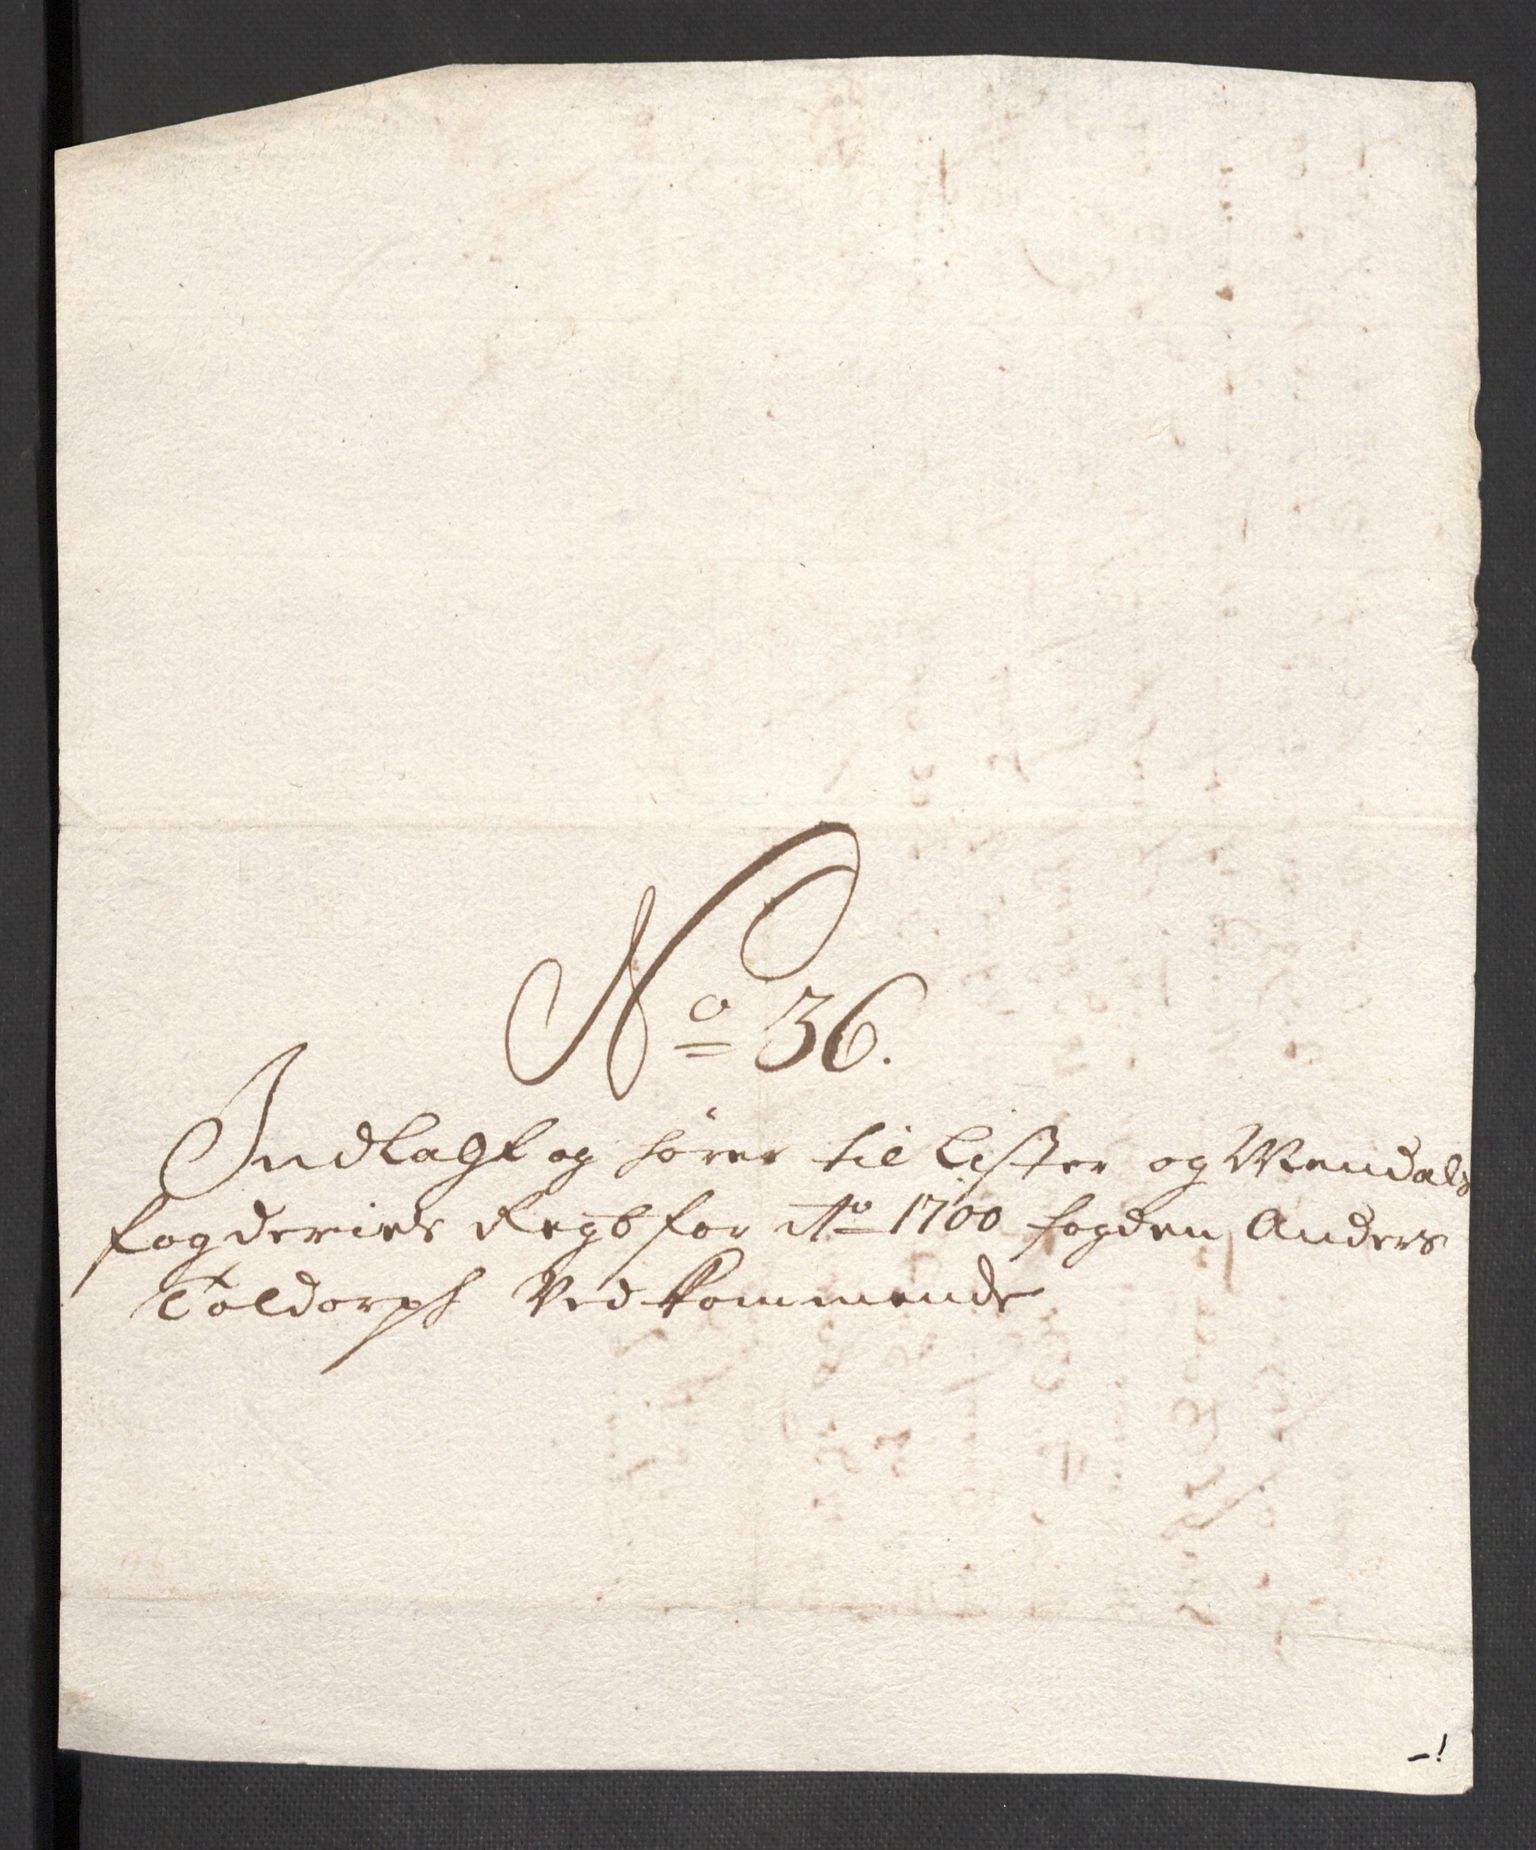 No 36.
Indlagt og hører til Lister og Mandals
fogderies Regsb for Ao 1700 fogden Anders
Toldorph Vedkommende